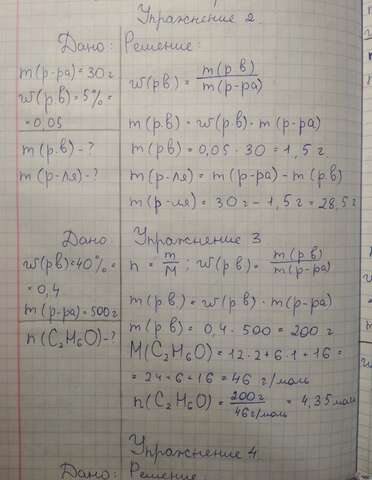 Упражнение 2
Дано: Решение:
m(р-ра)=30г
w(рв)=5%=
=0,05
m(р.в)-?
m(р-ля)-?
w(рв) = m(рв)/m(р-ра)
m(р.в)=w(р.в)·m(р-ра)
m(рв)=0,05·30=1,5г
m(р-ля)=m(р-ра)-m(р.в)
m(р-ля)=30г-1,5г=28,5г
Дано: Упражнение 3
w(рв)=40%=
=0,4
m(р-ра)=500г
n(C₂H₆O)-?
n=m/M; w(рв)=m(рв)/m(р-ра)
m(рв)=w(рв)·m(р-ра)
m(рв)=0,4·500=200г
M(C₂H₆O)=12·2+6·1+16=
=24+6+16=46 г/моль
n(C₂H₆O)=200г/46г/моль=4,35моль
Упражнение 4.
Дано: Решение: